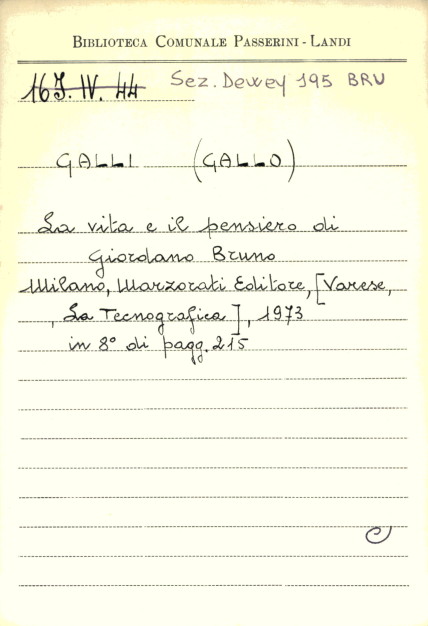 BIBLIOTECA COMUNALE PASSERINI - LANDI
16 J. IV. 44 Sez. Dewey 195 BRU
GALLI (GALLO)
La vita e il pensiero di
Giordano Bruno
Milano, Marzorati Editore, [Varese,
, La Tecnografica], 1973
in 8° di pagg. 215